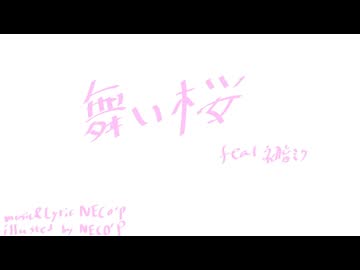 舞い桜
feat 初音ミク
music&Lyric NECO'P
illusted by NECO'P